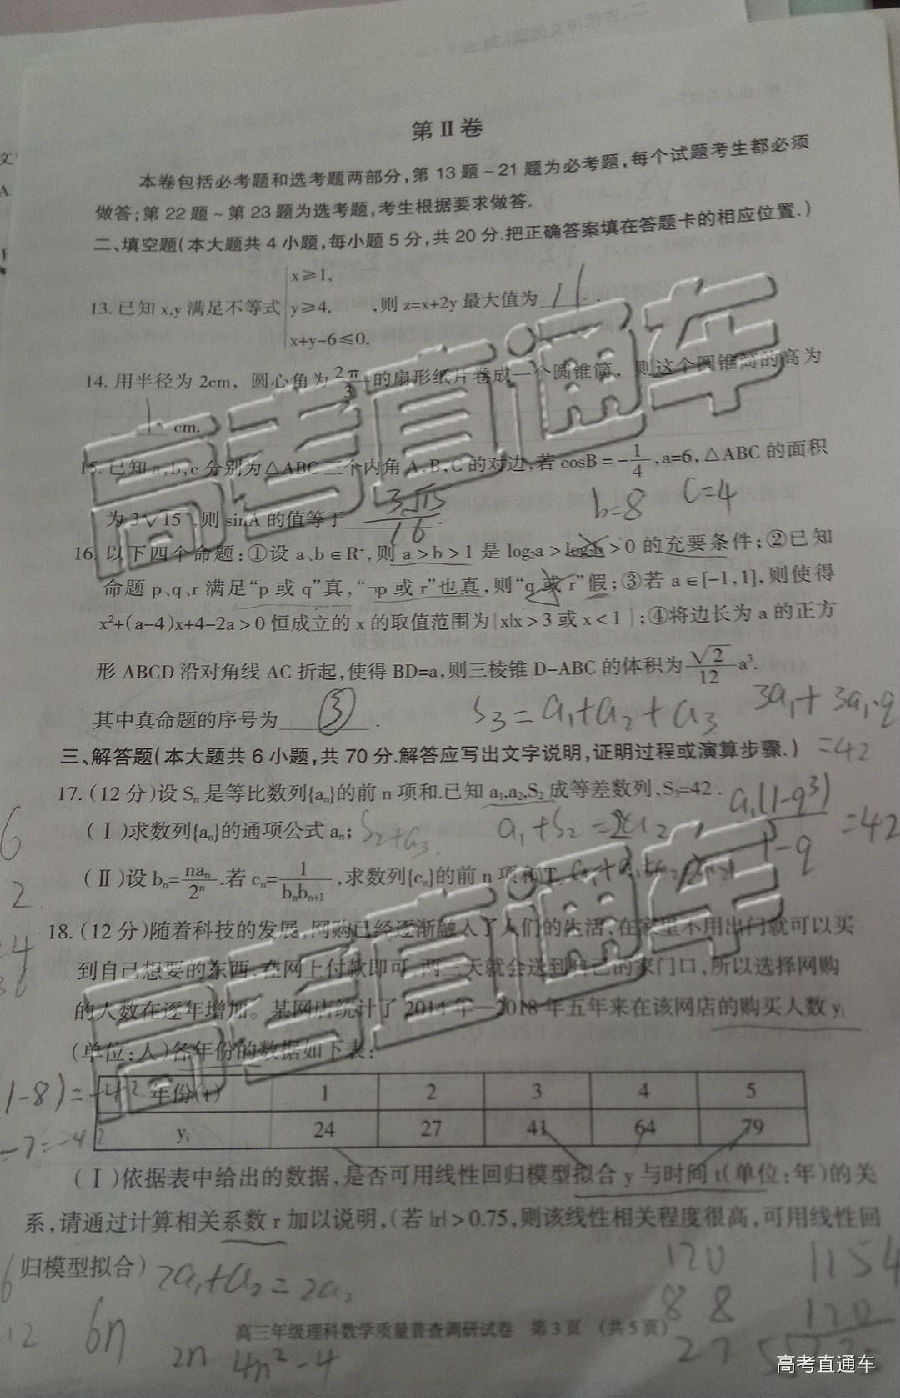 第Ⅱ卷
本卷包括必考题和选考题两部分,第 13 题~21 题为必考题,每个试题考生都必须
做答;第 22 题~第 23 题为选考题,考生根据要求做答.
二、填空题(本大题共 4 小题,每小题 5 分,共 20 分.把正确答案填在答题卡的相应位置.)
x≥1,
13.已知 x,y 满足不等式 y≥4, ,则 z=x+2y 最大值为 11 .
x+y-6≤0,
14. 用半径为 2cm, 圆心角为 2π/3 的扇形纸片卷成一个圆锥筒, 则这个圆锥筒的高为
cm.
15. 已知 a,b,c 分别为△ABC 三个内角 A,B,C 的对边,若 cosB=-1/4,a=6,△ABC 的面积
为 3√15 ,则 sinA 的值等于 3√15/16 .
b=8 c=4
16. 以下四个命题:①设 a、b∈R⁺,则 a>b>1 是 log₂a>log₂b>0 的充要条件;②已知
命题 p、q、r 满足“p 或 q”真,“¬p 或 r”也真,则“q 或 r”假;③若 a∈[-1,1],则使得
x²+(a-4)x+4-2a>0 恒成立的 x 的取值范围为{x|x>3 或 x<1};④将边长为 a 的正方
形 ABCD 沿对角线 AC 折起,使得 BD=a,则三棱锥 D-ABC 的体积为 √2/12 a³.
其中真命题的序号为 ③ .
S₃=a₁+a₂+a₃ 3a₁+3a₁·q
=42
三、解答题(本大题共 6 小题,共 70 分.解答应写出文字说明,证明过程或演算步骤.)
17. (12 分)设 Sₙ 是等比数列{aₙ}的前 n 项和.已知 a₁,a₂,S₂ 成等差数列,S₃=42 .
(Ⅰ)求数列{aₙ}的通项公式 aₙ;
S₂+a₃ a₁+S₂=2a₂, a₁(1-q³)/1-q =42
(Ⅱ)设 bₙ=naₙ/2ⁿ.若 cₙ=1/bₙbₙ₊₁,求数列{cₙ}的前 n 项和 T
18. (12 分)随着科技的发展,网购已经逐渐融入了人们的生活,在家里不用出门就可以买
到自己想要的东西,在网上付款即可,两三天就会送到自己的家门口,所以选择网购
的人数在逐年增加。某网店统计了 2014 年—2018 年五年来在该网店的购买人数 yᵢ
(单位:人)各年份的数据如下表:
年份(t) 1 2 3 4 5
yᵢ 24 27 41 64 79
(1-8)=-42
-7=-42
(Ⅰ)依据表中给出的数据,是否可用线性回归模型拟合 y 与时间 t(单位:年)的关
系,请通过计算相关系数 r 加以说明,(若 |r|>0.75,则该线性相关程度很高,可用线性回
归模型拟合)
2a₁+a₂=2a₂
120 1154
88 120
27
6n 2n 4n²-4
高三年级理科数学质量普查调研试卷 第 3 页 (共 5 页)
高考直通车
高考直通车
高考直通车